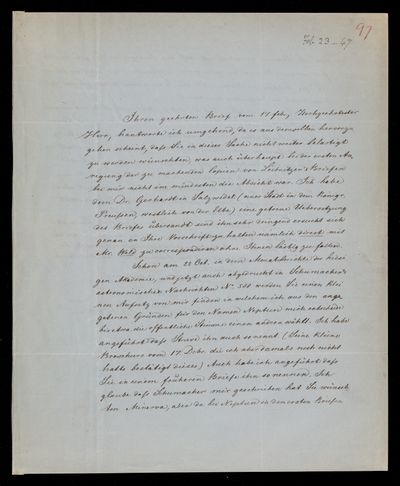 Feb. 23 — 47
97
Ihren geehrten Brief vom 17 Feb, Hochgeehrtester
Herr, beantworte ich umgehend, da es aus demselben hervorzu
gehen scheint, dafs Sie in dieser Sache nicht weiter belästigt
zu werden wünschten, was auch überhaupt bei der ersten An,
regung der zu machenden Copien von Leibnitzens Briefen
bei mir nicht im mindesten die Absicht war. Ich habe
dem Dr. Gerhardt in Salzwedel (einer Stadt in dem Königr.
Preufsen, westlich von der Elbe) eine getreue Uebersetzung
des Briefes übersandt und ihn sehr dringend ersucht sich
genau an Ihre Vorschriften zu halten nämlich direct mit
Mr. Wald zu correspondiren ohne Ihnen lästig zu fallen.
Schon am 22 Oct. in dem Monatsberichte der hiesi
gen Akademie, und jetzt auch abgedruckt in Schumacher's
astronomischen Nachrichten No. 588 werden Sie einen klei
nen Aufsatz von mir finden in welchem ich aus den ange
gebenen Gründen für den Namen Neptun mich entscheide
bis etwa die öffentliche Stimme einen andren wählt. Ich habe
angeführt dafs Struve ihn auch so nennt (Seine kleine
Broschure vom 17 Decbr. die ich aber damals noch nicht
hatte bestätigt dieses) Auch habe ich angeführt dafs
Sie in einem früheren Briefe ihn so nennen. Ich
glaube dafs Schumacher mir geschrieben hat Sie wünsch
ten Minerva, aber da Sie Neptun in den ersten Briefen